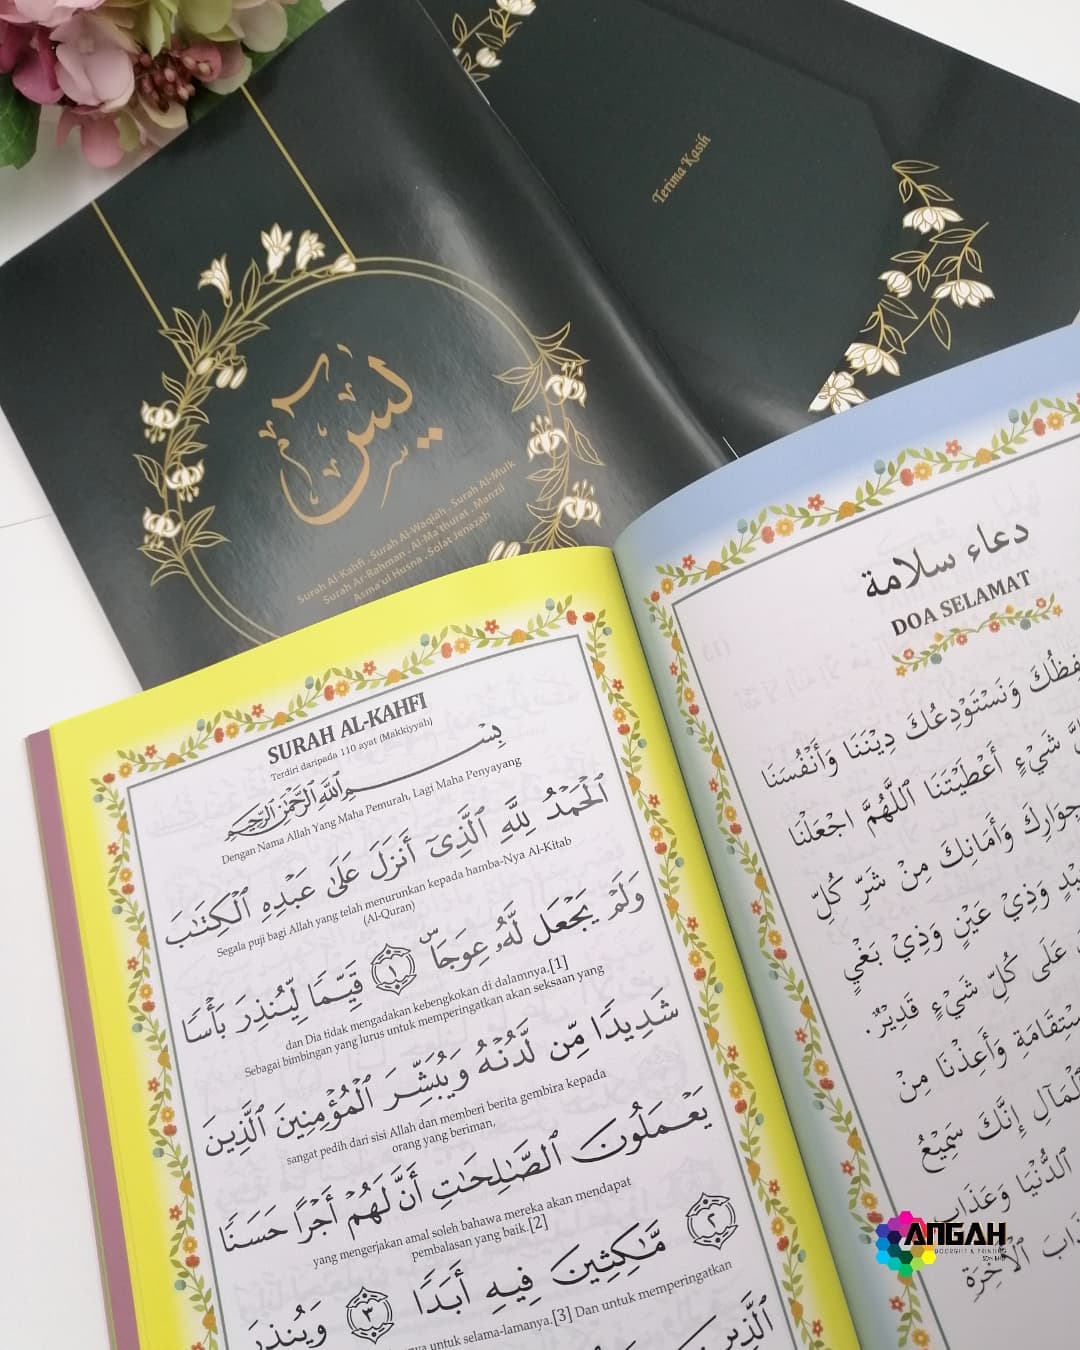 Terima Kasih
يس
Surah Al-Kahfi . Surah Al-Waqiah . Surah Al-Mulk
Surah Ar-Rahman . Al-Ma'thurat . Manzil
Asma'ul Husna . Solat Jenazah
SURAH AL-KAHFI
Terdiri daripada 110 ayat (Makkiyyah)
بِسْمِ اللَّهِ الرَّحْمَٰنِ الرَّحِيمِ
Dengan Nama Allah Yang Maha Pemurah, Lagi Maha Penyayang
الْحَمْدُ لِلَّهِ الَّذِي أَنزَلَ عَلَىٰ عَبْدِهِ الْكِتَابَ
Segala puji bagi Allah yang telah menurunkan kepada hamba-Nya Al-Kitab
(Al-Quran)
وَلَمْ يَجْعَل لَّهُ عِوَجًا ۜ ١ قَيِّمًا لِّيُنذِرَ بَأْسًا
dan Dia tidak mengadakan kebengkokan di dalamnya.[1]
Sebagai bimbingan yang lurus untuk memperingatkan akan seksaan yang
شَدِيدًا مِّن لَّدُنْهُ وَيُبَشِّرَ الْمُؤْمِنِينَ الَّذِينَ
sangat pedih dari sisi Allah dan memberi berita gembira kepada
orang yang beriman,
يَعْمَلُونَ الصَّالِحَاتِ أَنَّ لَهُمْ أَجْرًا حَسَنًا
yang mengerjakan amal soleh bahawa mereka akan mendapat
pembalasan yang baik.[2]
٢ مَّاكِثِينَ فِيهِ أَبَدًا ٣ وَيُنذِرَ
untuk selama-lamanya.[3] Dan untuk memperingatkan
الَّذِينَ
دعاء سلامة
DOA SELAMAT
وَنَسْتَوْدِعُكَ دِيْنَنَا وَأَنْفُسَنَا
شَيْءٍ أَعْطَيْتَنَا اَللَّهُمَّ اجْعَلْنَا
وَأَمَانِكَ مِنْ شَرِّ كُلِّ
وَذِيْ عَيْنٍ وَذِيْ بَغْيٍ
عَلَى كُلِّ شَيْءٍ قَدِيْرٌ.
وَأَعِذْنَا مِنْ
إِنَّكَ سَمِيْعُ
الدُّنْيَا وَعَذَابِ
الْآخِرَةِ
ANGAH
SDN BHD